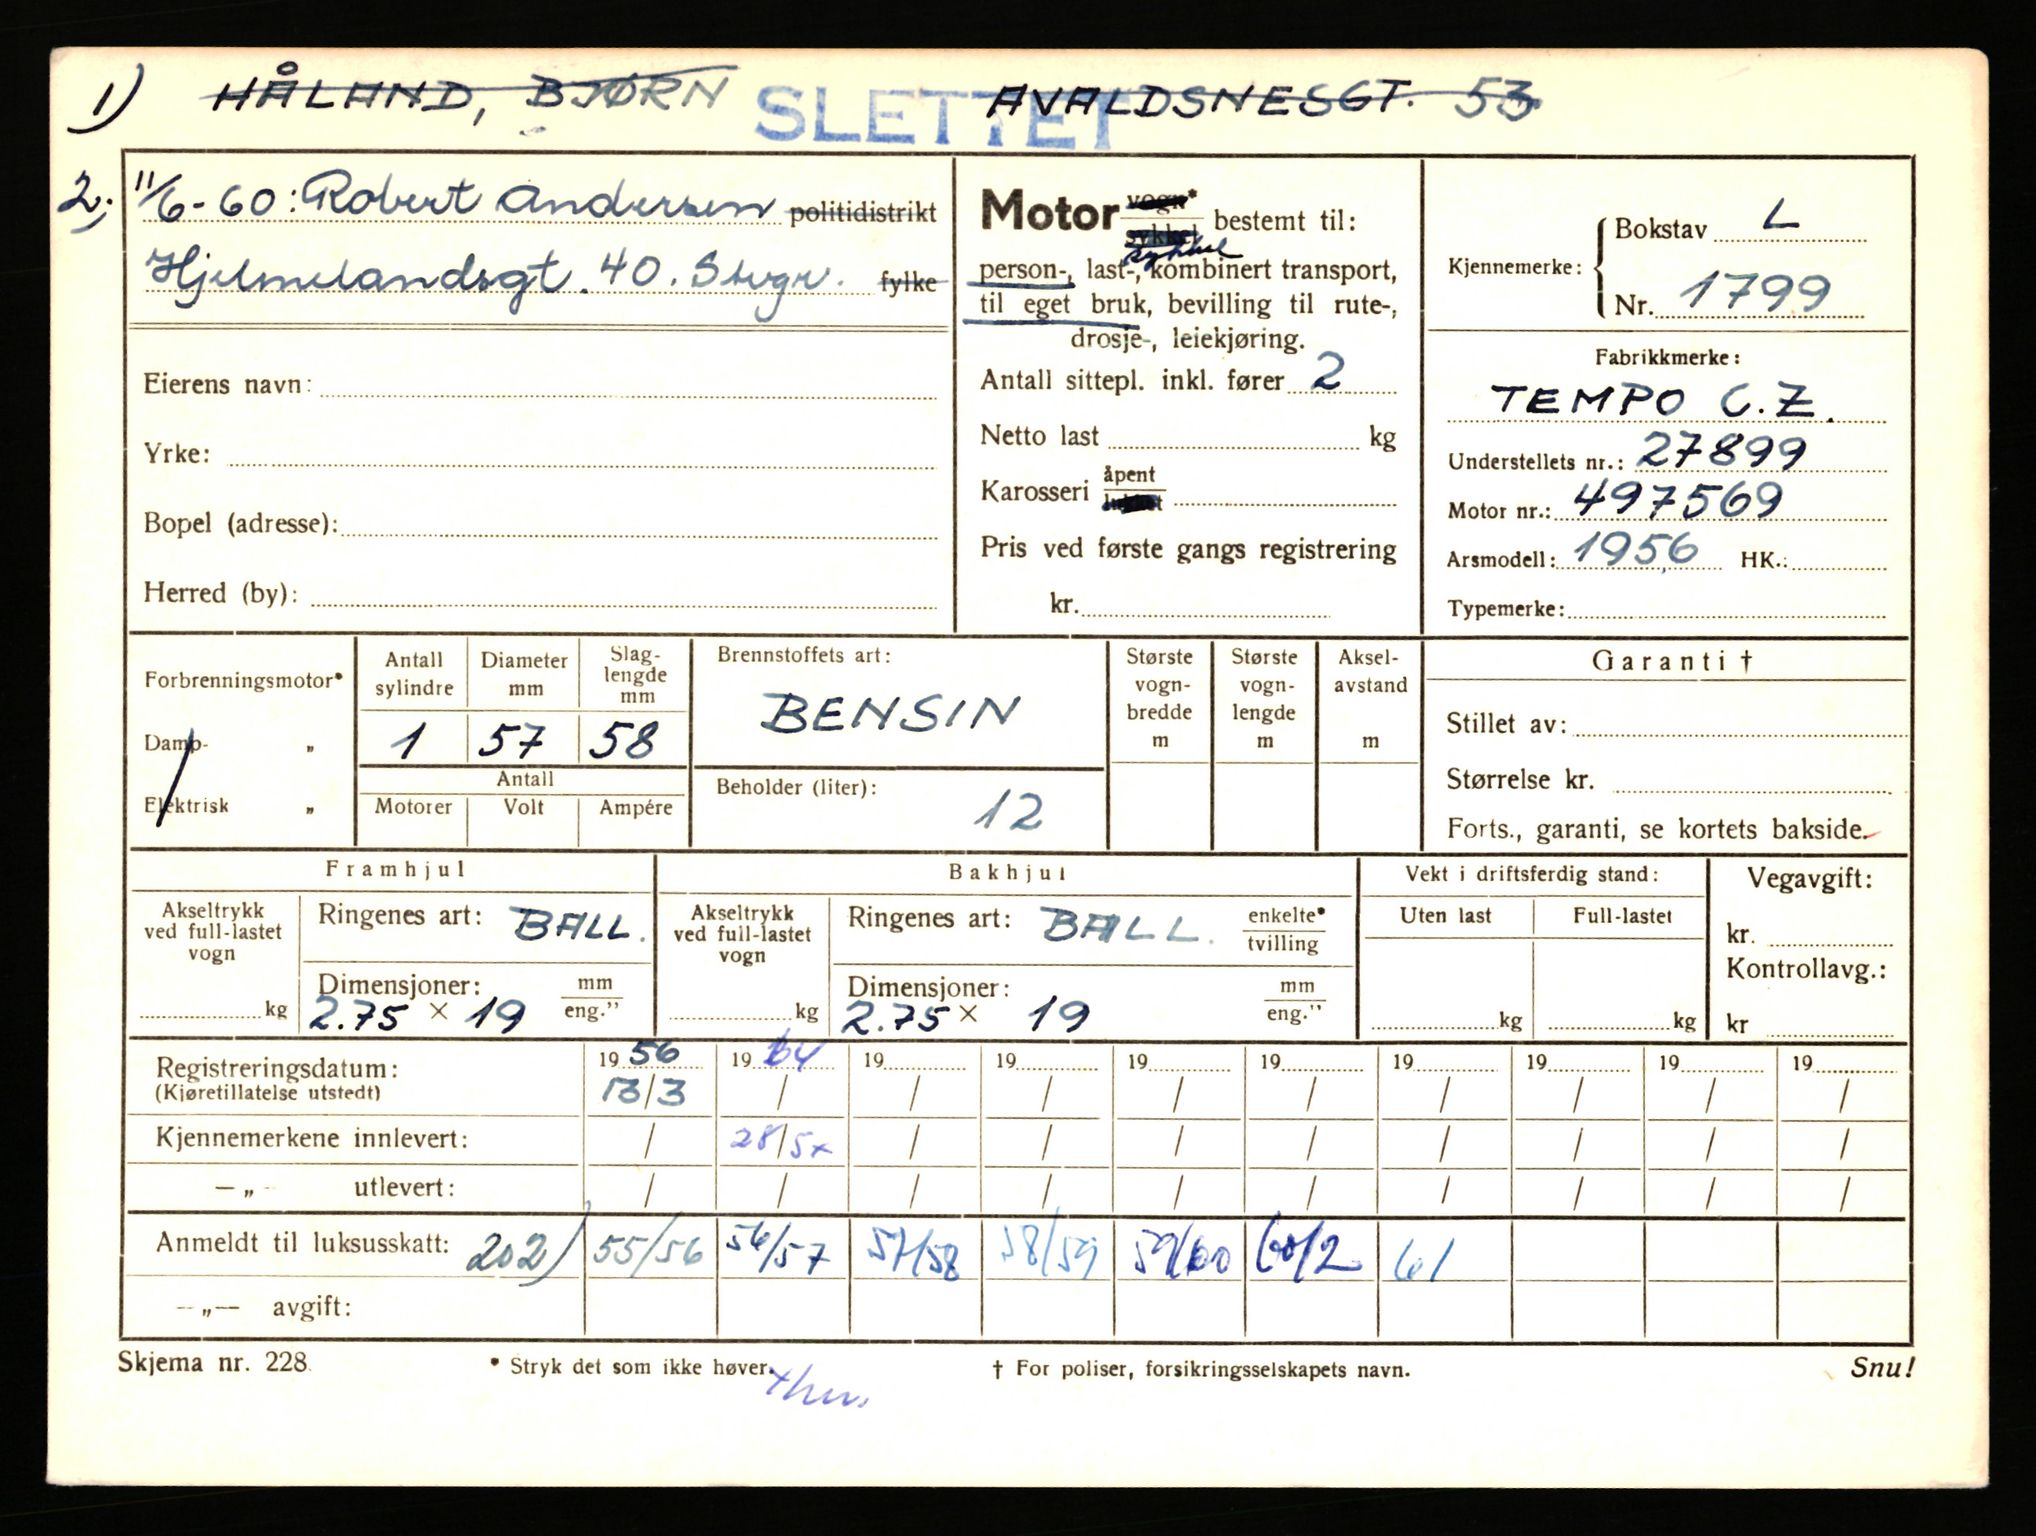 1) HÅLAND, BJØRN AVALDSNESGT. 53
SLETTET
2. 11/6-60: Robert Andersen politidistrikt
Hjelmelandsgt. 40. Svgr. fylke
Eierens navn:
Yrke:
Bopel (adresse):
Herred (by):
Motor vogn* sykkel bestemt til:
sykkel
person-, last-, kombinert transport,
til eget bruk, bevilling til rute-,
drosje-, leiekjøring.
Antall sittepl. inkl. fører 2
Netto last kg
Karosseri åpent
Pris ved første gangs registrering
kr.
Kjennemerke: Bokstav L
Nr. 1799
Fabrikkmerke:
TEMPO C.Z.
Understellets nr.: 27899
Motor nr.: 497569
Arsmodell: 1956 HK.:
Typemerke:
Forbrenningsmotor*
Damp- „
Elektrisk „
Antall sylindre Diameter mm Slag-lengde mm
1 57 58
Antall
Motorer Volt Ampére
Brennstoffets art:
BENSIN
Beholder (liter):
12
Største vogn-bredde m
Største vogn-lengde m
Aksel-avstand m
Garanti †
Stillet av:
Størrelse kr.
Forts., garanti, se kortets bakside.
Framhjul
Akseltrykk ved full-lastet vogn
kg
Ringenes art: BALL.
Dimensjoner: mm eng.”
2.75 × 19
Bakhjul
Akseltrykk ved full-lastet vogn
kg
Ringenes art: BALL. enkelte* tvilling
Dimensjoner: mm eng.”
2.75 × 19
Vekt i driftsferdig stand:
Uten last Full-lastet
kg kg
Vegavgift:
kr.
Kontrollavg.:
kr
Registreringsdatum: 19 56 19 64 19 19 19 19 19 19 19 19
(Kjøretillatelse utstedt) 13/3 / / / / / / / / /
Kjennemerkene innlevert: / 28/5x / / / / / / / /
— „ — utlevert: / / / / / / / / / /
Anmeldt til luksusskatt: 202) 55/56 56/57 57/58 58/59 59/60 60/2 61
— „ — avgift:
Skjema nr. 228. * Stryk det som ikke høver. † For poliser, forsikringsselskapets navn. Snu!